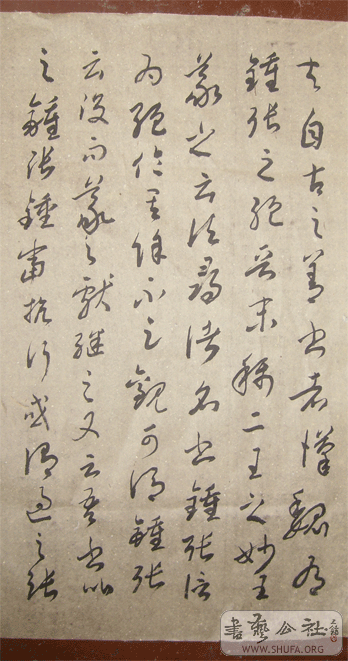 夫自古之善書者漢魏有
鍾張之絕晉末稱二王之妙王
羲之云頃尋諸名書鍾張信
為絕倫其餘不足觀可謂鍾張
云沒而羲獻繼之又云吾書比
之鍾張鍾當抗行或謂過之張
書藝公社
WWW.SHUFA.ORG